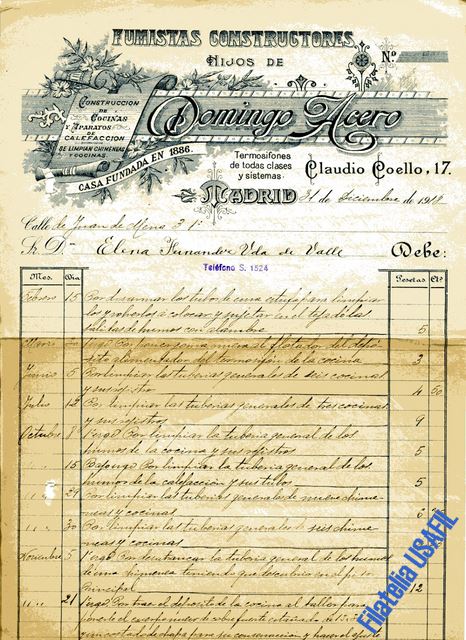 FUMISTAS CONSTRUCTORES
HIJOS DE
Nº
Domingo Acero
CONSTRUCCION
DE
COCINAS
Y APARATOS
DE
CALEFACCION
SE LIMPIAN CHIMENEAS
Y COCINAS
CASA FUNDADA EN 1886.
Termosifones
de todas clases
y sistemas
Claudio Coello, 17.
MADRID 31 de Diciembre de 19
Calle de Juan de Mena 3 1º
Sr. D.ª Elena Fernandez Vda de Valle Debe:
Teléfono S. 1524
Mes. Día Pesetas Cts
Febrero 15 Por desarmar los tubos de una estufa para limpiar
los y volverlos a colocar y sujetar en el
salidas de humos con alambre 5
poner una nueva al flotador del depó
sito alimentador del termosifón de la cocina 3
Junio 5 Por limpiar las tuberias generales de seis cocinas
y sus registros 4 50
Julio 12 Por limpiar las tuberias generales de tres cocinas
y sus registros 9
Octubre 8 Por limpiar la tuberia general de los
humos de la cocina y sus registros 5
" " 15 Por limpiar la tuberia general de los
humos de la calefacción y sus tubos 5
" " 29 Por limpiar las tuberias generales de nueve chime
neas y cocinas 6
" " 30 Por limpiar las tuberias generales de seis chime
neas y cocinas
Noviembre 5 Por desatrancar la tuberia general de los humos
de una chimenea teniendo que descubrir en el piso
principal 12
" " 21 Por traer el deposito de la cocina al taller para
ponerle el cuerpo nuevo de cobre
Filatelia USAFIL